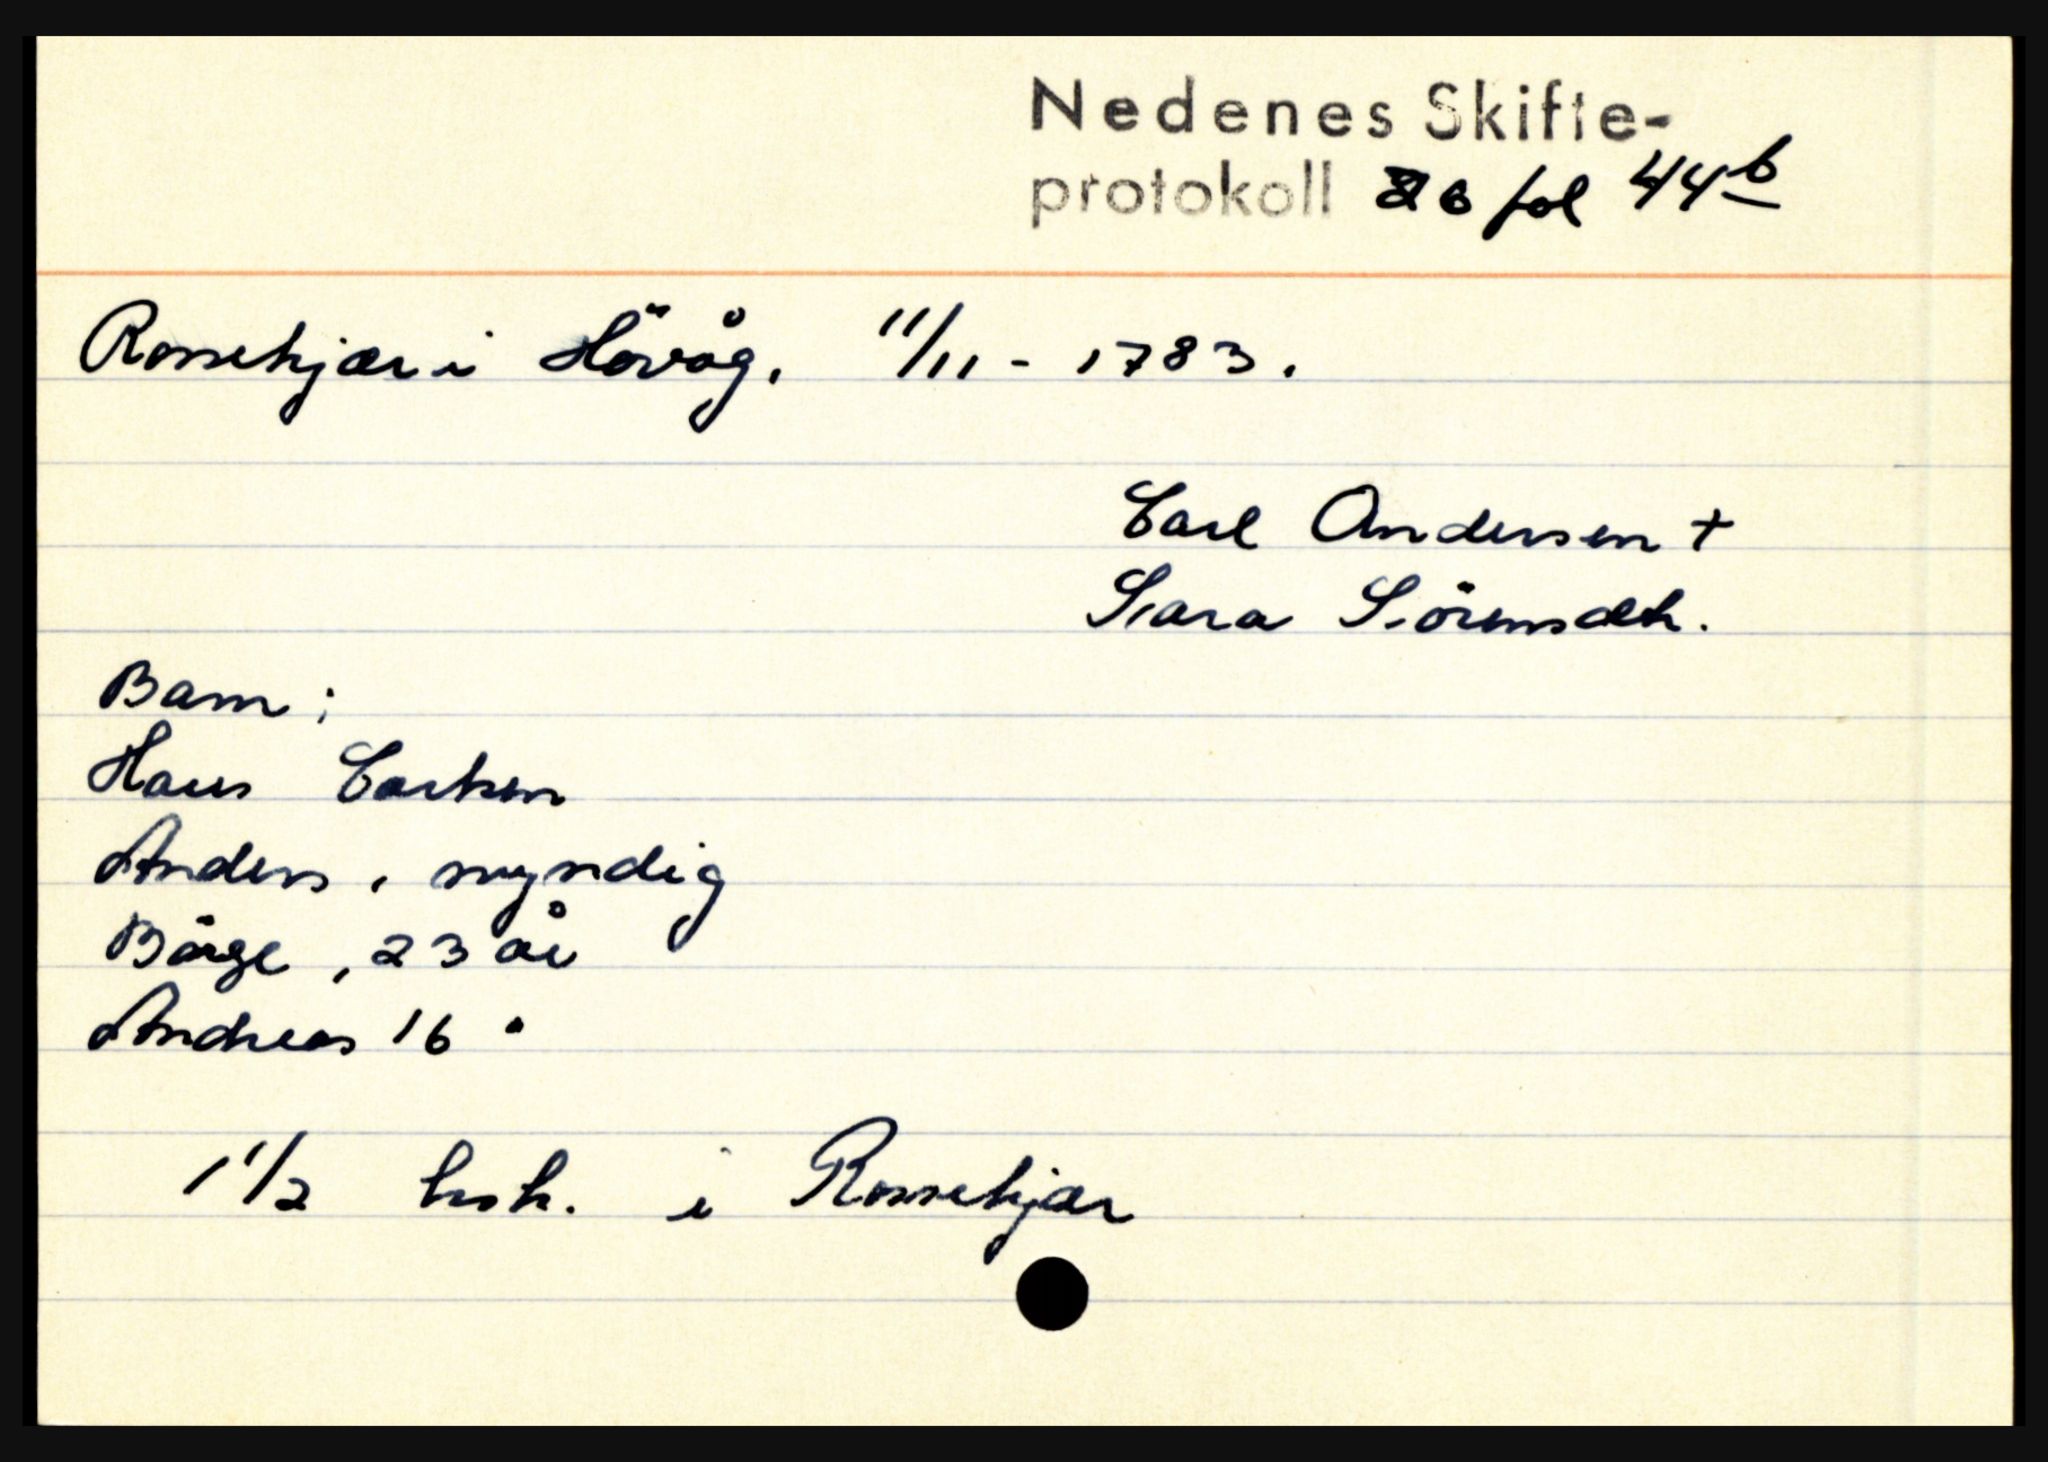 Nedenes Skifte-
protokoll 26 fol 44b
Rossekjær i Hövåg. 11/11 - 1783.
Carl Andersen +
Sara Sörensdtr.
Barn:
Hans Carlsen
Anders, myndig
Börge, 23 år
Andreas 16 "
1 1/2 hsk. i Rossekjær